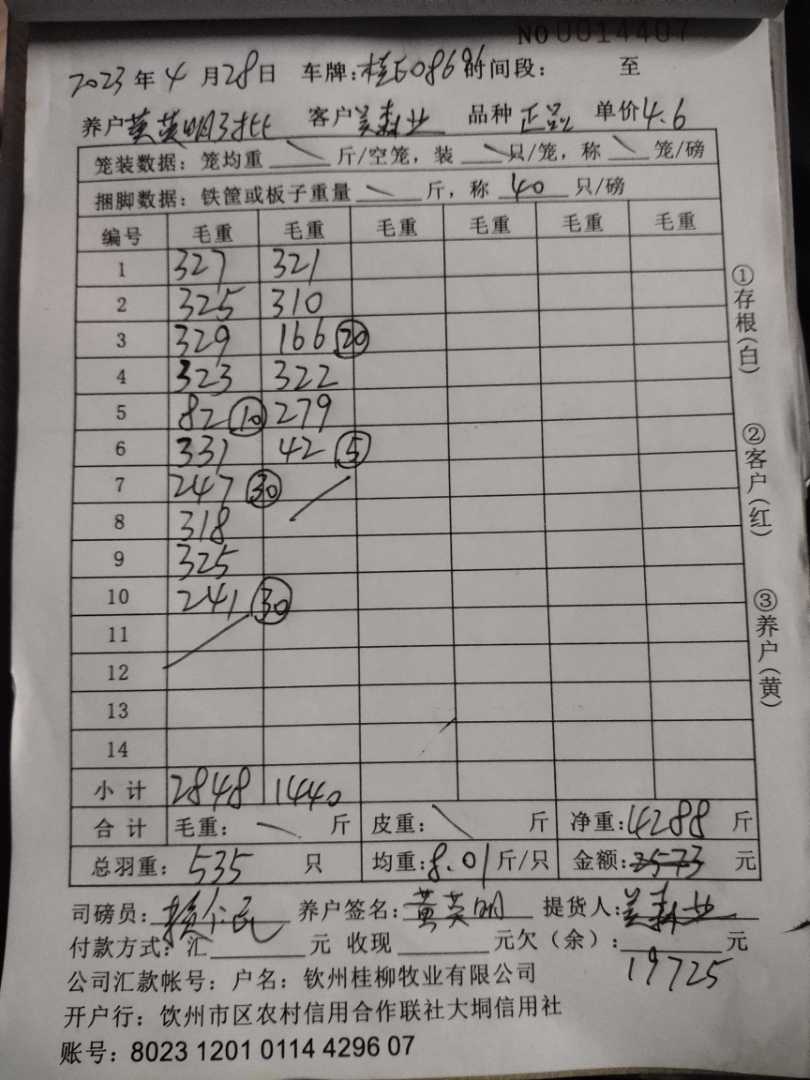 NO 0014407
2023年4月28日 车牌:桂E08696 时间段: 至
养户 黄英明3批 客户 美森业 品种 正品 单价4.6
笼装数据：笼均重 \ 斤/空笼，装 \ 只/笼，称 \ 笼/磅
捆脚数据：铁筐或板子重量 \ 斤，称 40 只/磅
编号 毛重 毛重 毛重 毛重 毛重 毛重
1 327 321
2 325 310
3 329 166 ⑳
4 323 322
5 82 ⑩ 279
6 331 42 ⑤
7 247 ㉚
8 318
9 325
10 241 ㉚
11
12
13
14
小计 2848 1440
合计 毛重: \ 斤 皮重: \ 斤 净重:4288 斤
总羽重: 535 只 均重:8.01斤/只 金额:3573 元
司磅员: 养户签名:黄英明 提货人:美森业
付款方式: 汇 元 收现 元欠（余）: 元
19725
公司汇款帐号: 户名: 钦州桂柳牧业有限公司
开户行: 饮州市区农村信用合作联社大垌信用社
账号: 8023 1201 0114 4296 07
①存根(白)
②客户(红)
③养户(黄)